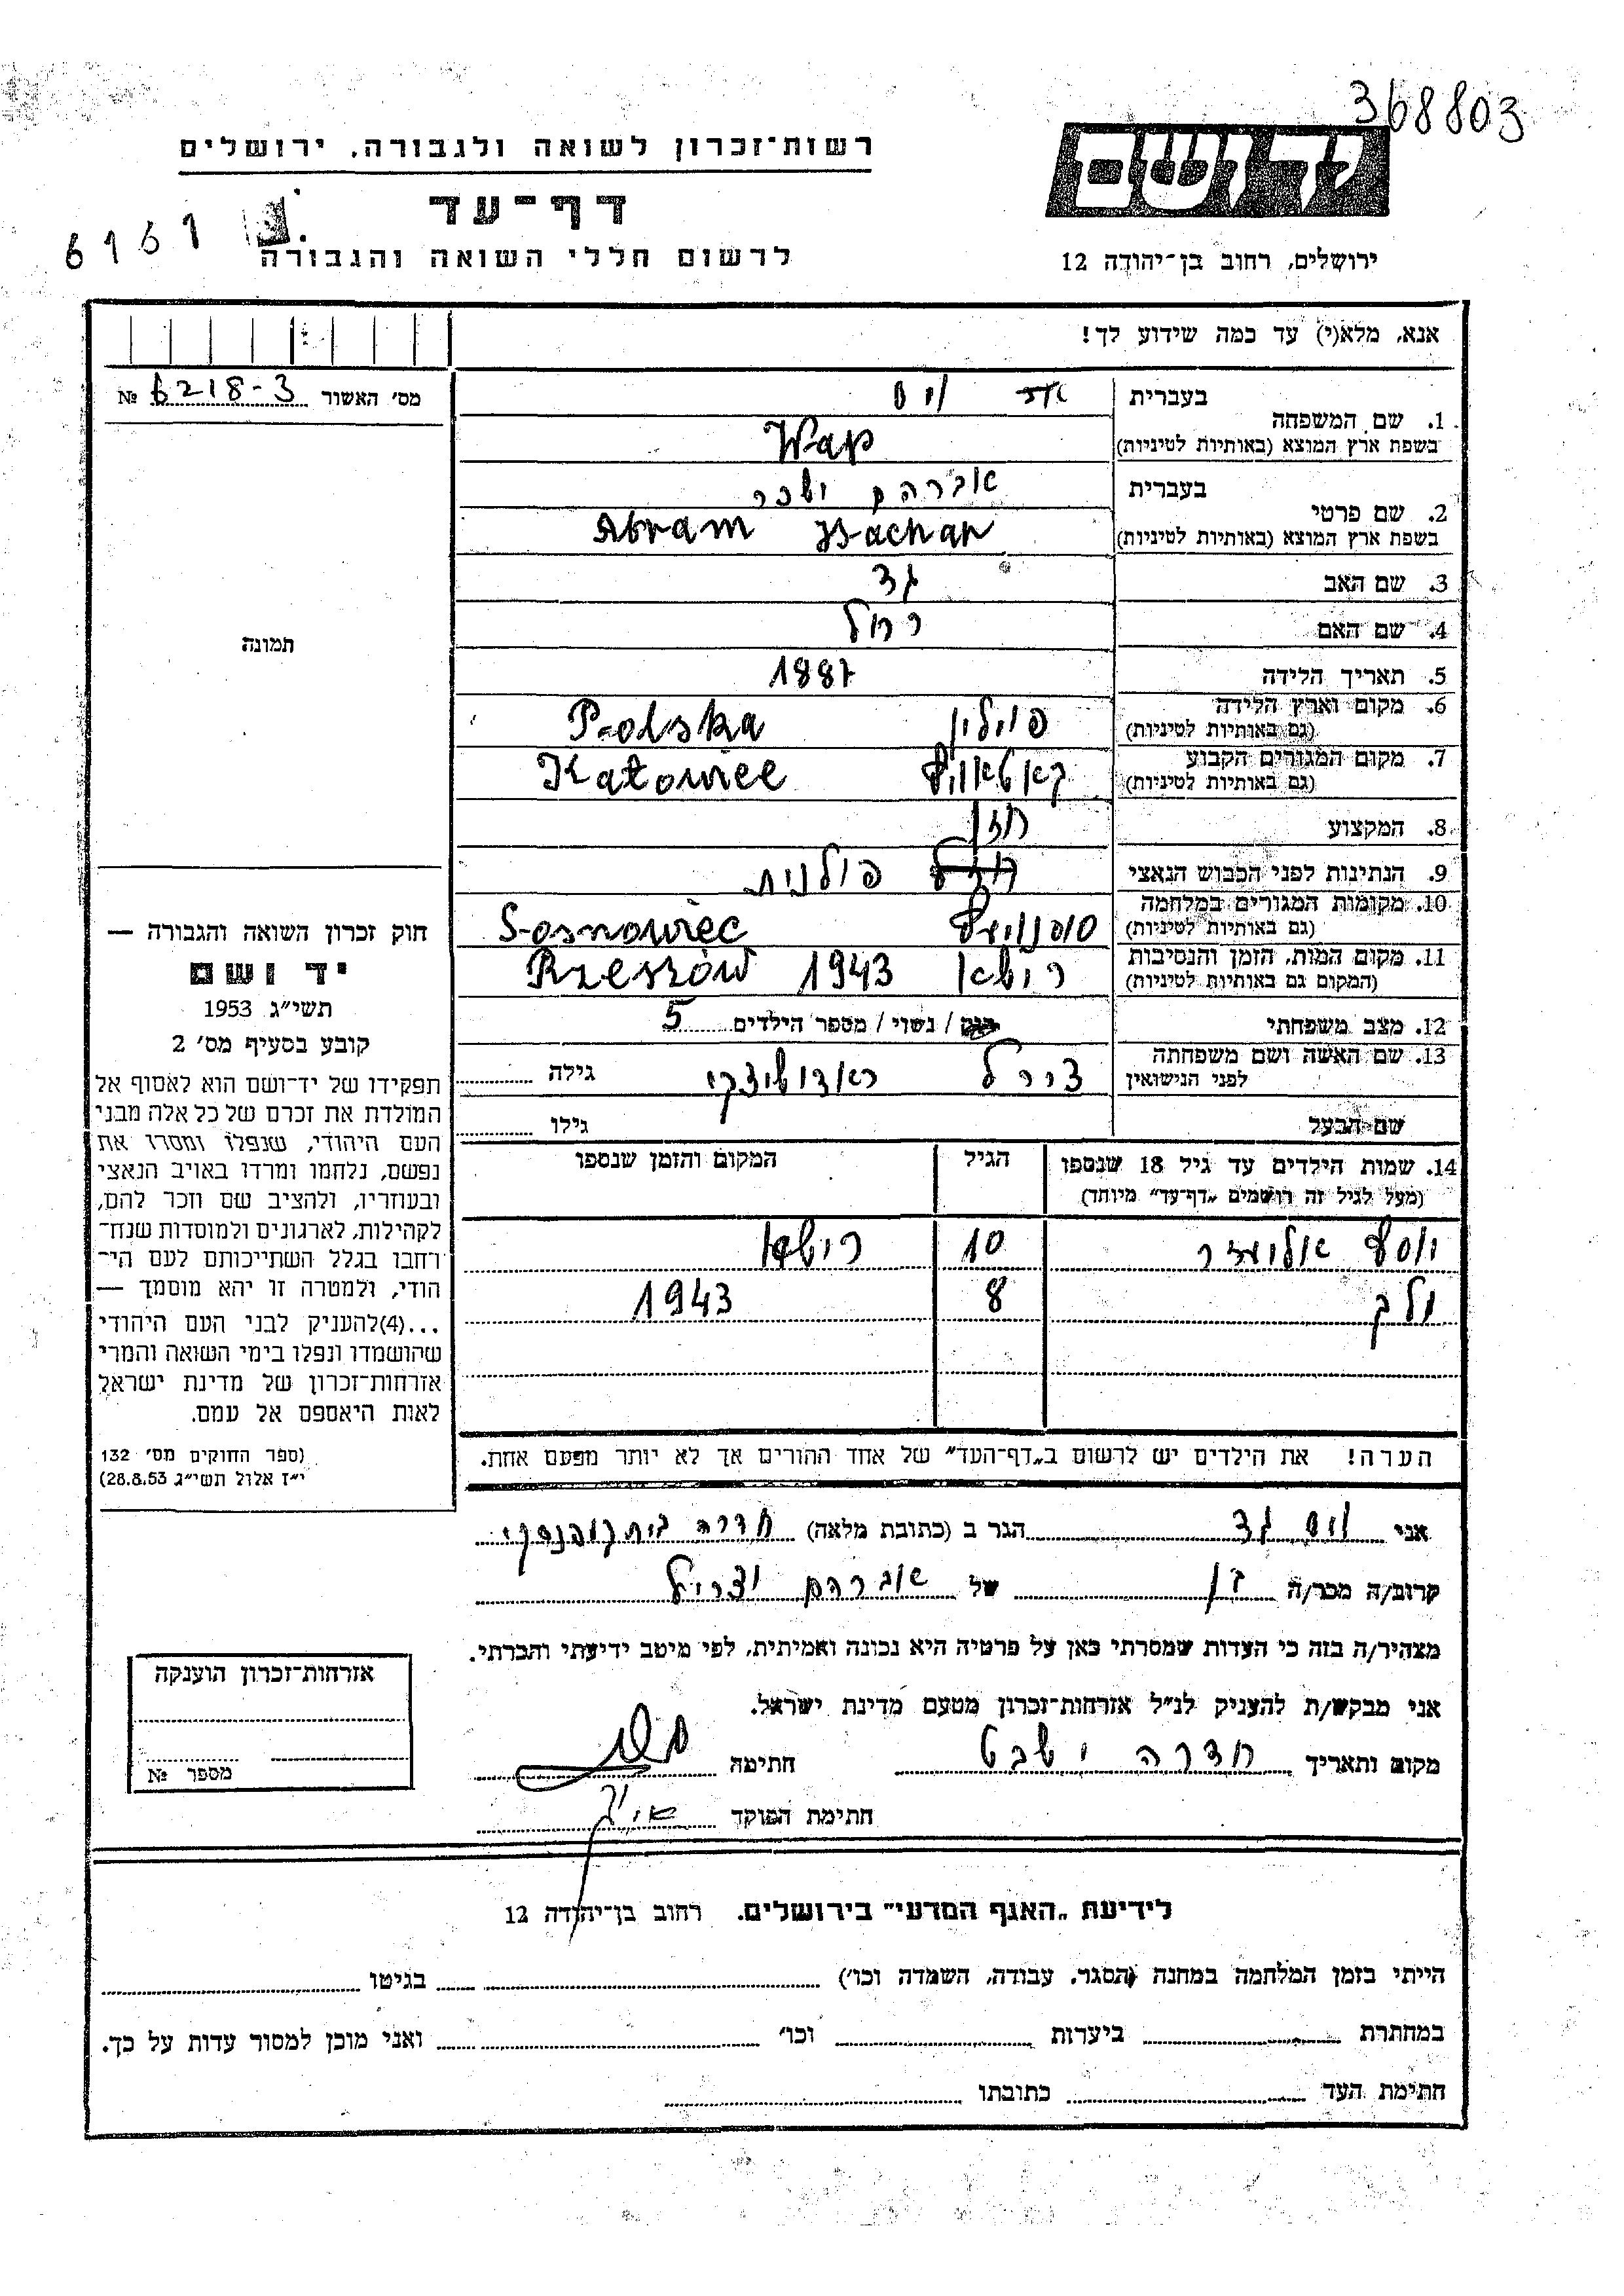 368803
רשות־זכרון לשואה ולגבורה, ירושלים
יד ושם
דף־עד
6161
לרשום חללי השואה והגבורה
ירושלים, רחוב בן־יהודה 12
אנא, מלא(י) עד כמה שידוע לך!
מס׳ האשור 6218-3 №
1. שם המשפחה
בעברית
בשפת ארץ המוצא (באותיות לטיניות) Wap
2. שם פרטי
בעברית אברהם ישכר
בשפת ארץ המוצא (באותיות לטיניות) Abram Isachar
3. שם האב גד
4. שם האם רחל
5. תאריך הלידה 1887
6. מקום וארץ הלידה פוילין Polska
(גם באותיות לטיניות)
7. מקום המגורים הקבוע Katowice
(גם באותיות לטיניות)
8. המקצוע חזן
9. הנתינות לפני הכבוש הנאצי פולנית
10. מקומות המגורים במלחמה Sosnowiec
(גם באותיות לטיניות)
11. מקום המות, הזמן והנסיבות רישא 1943 Rzeszów
(המקום גם באותיות לטיניות)
12. מצב משפחתי רווק / נשוי / מספר הילדים 5
13. שם האשה ושם משפחתה
לפני הנישואין צירל גילה
שם הבעל גילו
14. שמות הילדים עד גיל 18 שנספו
(מעל לגיל זה רושמים „דף־עד״ מיוחד)
הגיל
המקום והזמן שנספו
יוסף אליעזר 10 רישא
8 1943
הערה! את הילדים יש לרשום ב„דף־העד״ של אחד ההורים אך לא יותר מפעם אחת.
תמונה
חוק זכרון השואה והגבורה —
יד ושם
תשי״ג 1953
קובע בסעיף מס׳ 2
תפקידו של יד־ושם הוא לאסוף אל
המולדת את זכרם של כל אלה מבני
העם היהודי, שנפלו ומסרו את
נפשם, נלחמו ומרדו באויב הנאצי
ובעוזריו, ולהציב שם וזכר להם,
לקהילות, לארגונים ולמוסדות שנח־
רחבו בגלל השתייכותם לעם הי־
הודי, ולמטרה זו יהא מוסמך —
...(4)להעניק לבני העם היהודי
שהושמדו ונפלו בימי השואה והמרי
אזרחות־זכרון של מדינת ישראל
לאות היאספם אל עמם.
(ספר החוקים מס׳ 132
י״ז אלול תשי״ג 28.8.53)
אני גד הגר ב (כתובת מלאה) חדרה
קרוב/ה מכר/ה בן של אברהם וצירל
מצהיר/ה בזה כי העדות שמסרתי כאן על פרטיה היא נכונה ואמיתית, לפי מיטב ידיעתי והכרתי.
אני מבקש/ת להעניק לנ״ל אזרחות־זכרון מטעם מדינת ישראל.
מקום ותאריך חדרה י שבט חתימה
חתימת הפוקד
אזרחות־זכרון הוענקה
מספר №
לידיעת „האגף המדעי״ בירושלים, רחוב בן־יהודה 12
הייתי בזמן המלחמה במחנה (הסגר, עבודה, השמדה וכו׳) בגיטו
במחתרת ביערות וכו׳ ואני מוכן למסור עדות על כך.
חתימת העד כתובתו